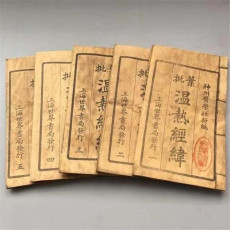 神州醫學社新編
葉批
溫熱經緯
上海世界書局發行 一
批
溫熱經緯
上海世界書局發行 二
批
溫熱經
上海世界書局發行 三
批
上海世界書局發行 四
上海世界書局發行 五